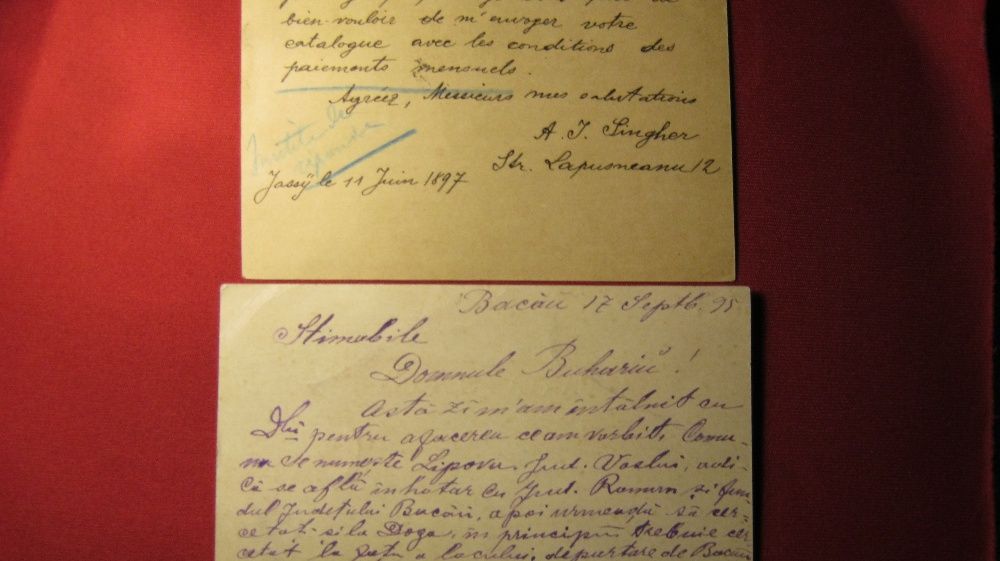 bien vouloir de m'envoyer votre
catalogue avec les conditions des
paiements mensuels.
Agréez, Messieurs mes salutations
A. J. Singher
Str. Lapusneanu 12
Jassÿ le 11 Juin 1897
Bacău 17 Septb. 95
Stimabile
Domnule Buhariŭ!
Astă zi m'am întâlnit cu
pentru afacerea ce am vorbit. Comu-
na se numește Lipova Jud. Vaslui, adi-
că se află în hotar cu Jud. Roman și fun-
dul Județului Bacău, apoi urmează să cer-
cetați și la Doga, în principiŭ trebuie cer-
cetat la fața a locului, depărtare de Bacău